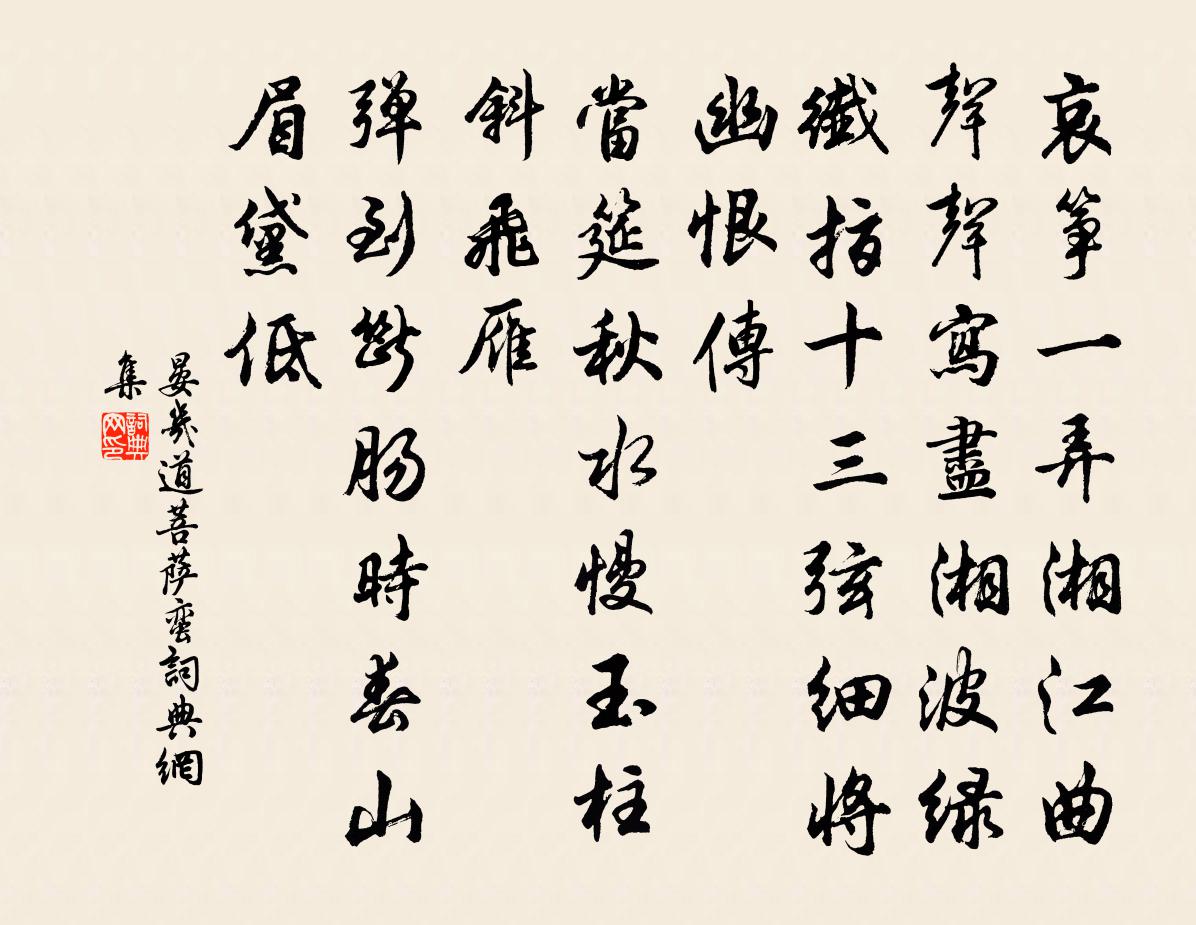 哀筝一弄湘江曲
聲聲寫盡湘波緑
纖指十三弦細將
幽恨傳
當筵秋水慢玉柱
斜飛雁
弹到斷肠時春山
眉黛低
晏幾道菩萨蛮詞典網
集
詞典
网印